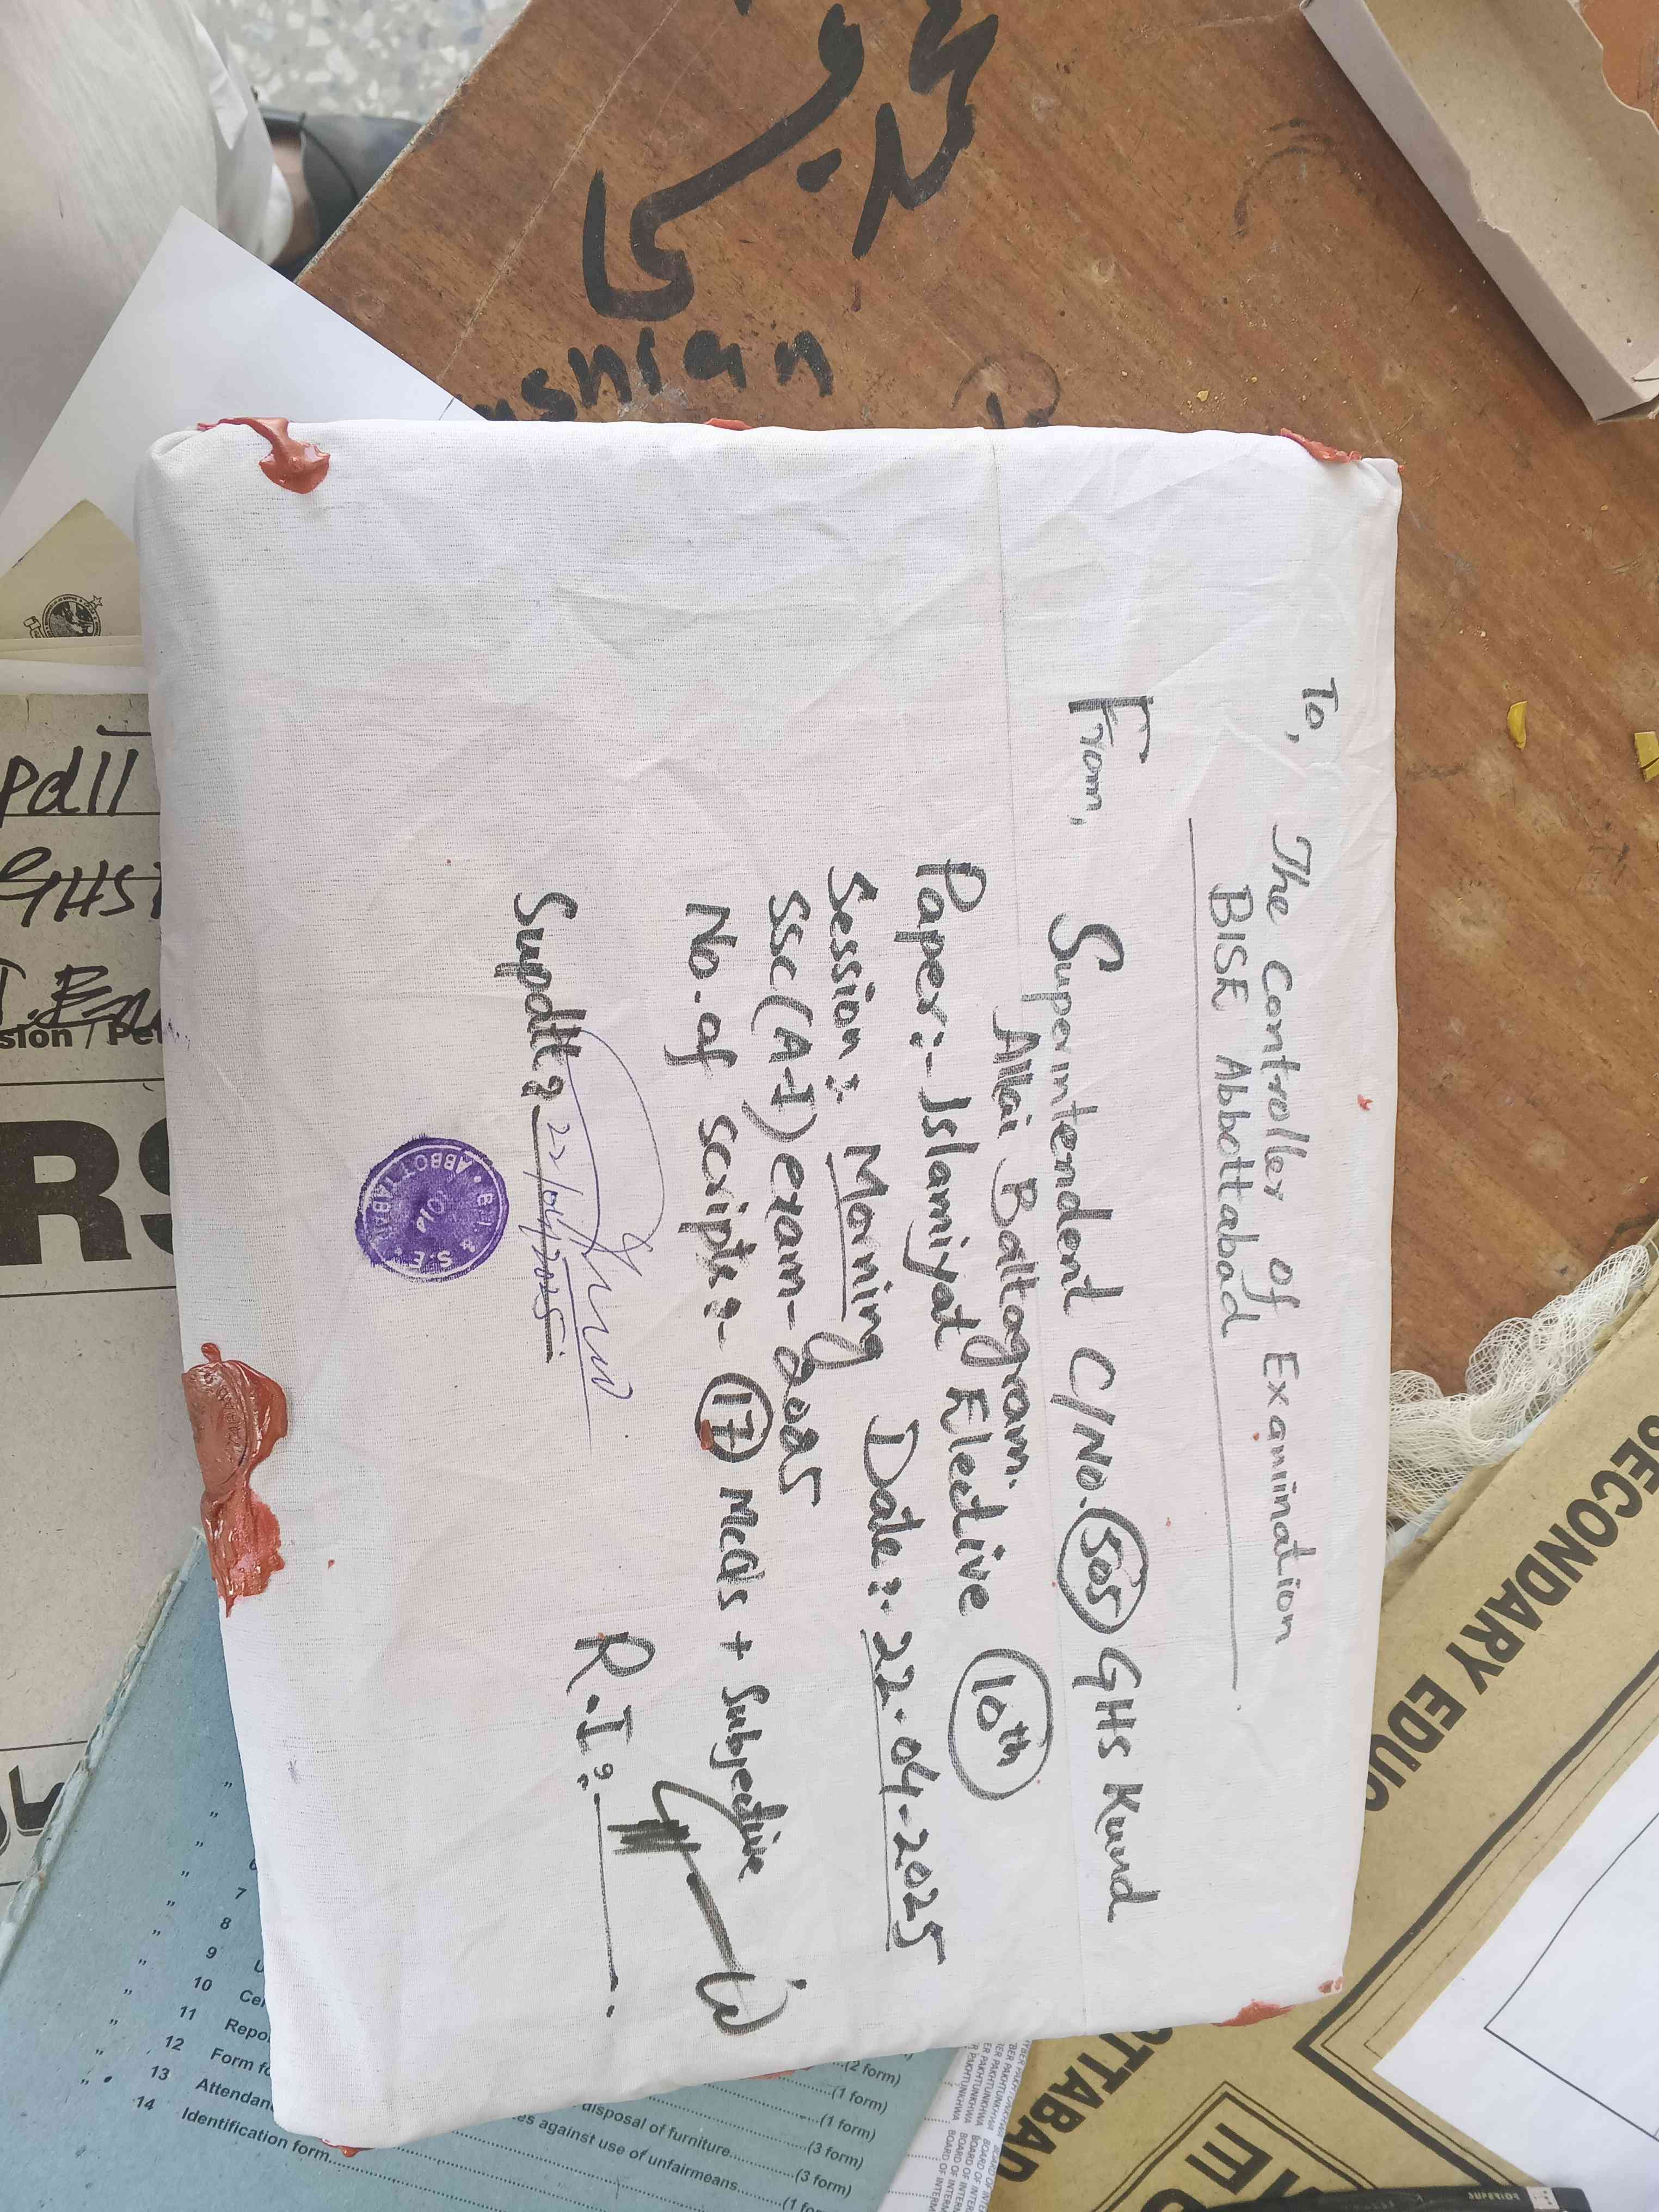 To,
The Controller of Examination
BISE Abbottabad
From,
Superintendent C/No. 505 GHS Kund
Allai Battagram.
Paper:- Islamiyat Elective 10th
Session: Morning Date:- 22-04-2025
SSC(A-I) exam-2025
No. of scripts:- 17 Mcqs + Subjective
Supdtt: 22/04/2025.
R.I:
B.I & S.E.
ABBOTTABAD
SECONDARY EDUC
OTTABAD
GHS
7
8
9
10 Cer
11 Repo
12 Form fo
13 Attendan
14 Identification form
(2 form)
(1 form)
(1 form)
disposal of furniture (3 form)
es against use of unfairmeans (3 form)
SUPERIOR